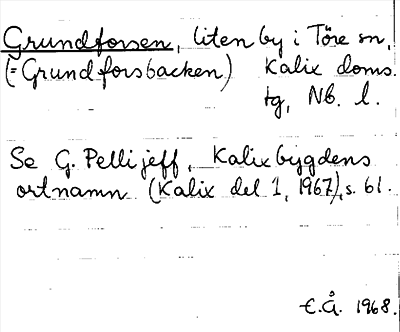 Grundforsen, liten by i Töre sn,
(=Grundforsbacken) Kalix doms.
tg, Nb. l.
Se G. Pellijeff, Kalixbygdens
ortnamn (Kalix del 1, 1967), s. 61.
E.Å. 1968.